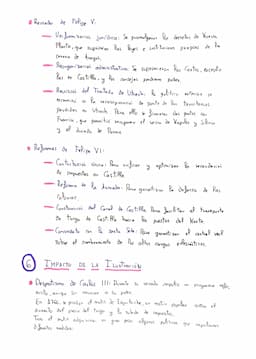 • Reinado de Felipe V:
— Uniformización jurídica: Se promulgaron los decretos de Nueva
Planta, que suprimieron las leyes e instituciones propias de la
corona de Aragón.
— Reorganización administrativa: Se suprimieron las Cortes, excepto
las de Castilla, y los consejos perdieron poder.
— Revisión del Tratado de Utrecht: La política exterior se
encaminó a la recuperación de parte de los territorios
perdidos en Utrecht. Para ello se firmaron dos pactos con
Francia, que permitió recuperar el reino de Nápoles y Sicilia
y el ducado de Parma.
• Reformas de Felipe VI:
— Contribución única: Para unificar y optimizar la recaudación
de impuestos en Castilla
— Reforma de la Armada: Para garantizar la defensa de las
colonias.
— Construcción del Canal de Castilla: Para facilitar el transporte
de trigo de Castilla hacia los puertos del Norte.
— Concordato con la Santa Sede: Para garantizar el control real
sobre el nombramiento de los altos cargos eclesiásticos.
6 IMPACTO DE LA ILUSTRACIÓN
• Despotismo de Carlos III: Durante su reinado impulsó un programa
En 1766, se produjo el motín de Esquilache, un motín popular contra el
aumento del precio del trigo y la subida de impuestos.